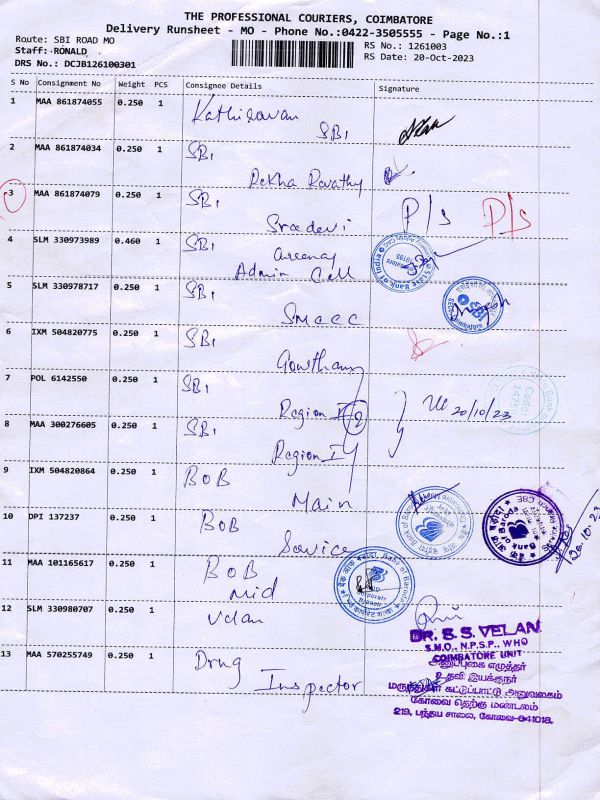 THE PROFESSIONAL COURIERS, COIMBATORE
Delivery Runsheet - MO - Phone No.:0422-3505555 - Page No.:1
Route: SBI ROAD MO
RS No.: 1261003
Staff: RONALD
RS Date: 20-Oct-2023
DRS No.: DCJB126100301
S No Consignment No Weight PCS Consignee Details Signature
1 MAA 861874055 0.250 1 Kathiravan
SBI
2 MAA 861874034 0.250 1 SBI
Rekha Revathy
3 MAA 861874079 0.250 1 SBI
Sreedevi P/s P/s
4 SLM 330973989 0.460 1 SBI
Admin Cell
5 SLM 330978717 0.250 1 SBI
SMECC
6 IXM 504820775 0.250 1 SBI
Gowtham
7 POL 6142550 0.250 1 SBI
Region 20/10/23
8 MAA 300276605 0.250 1 SBI
Region
9 IXM 504820864 0.250 1 BOB
Main
10 DPI 137237 0.250 1 BOB
Service
Bank of Baroda
20.10.23
11 MAA 101165617 0.250 1 BOB
Mid
12 SLM 330980707 0.250 1 Velan
DR. S. S. VELAN
S.M.O., N.P.S.P., WHO
COIMBATORE UNIT
13 MAA 570255749 0.250 1 Drug
Inspector
உதவி இயக்குநர்
மருந்துகள் கட்டுப்பாட்டு அலுவலகம்
கோவை தெற்கு மண்டலம்
219, பந்தய சாலை, கோவை-641018.